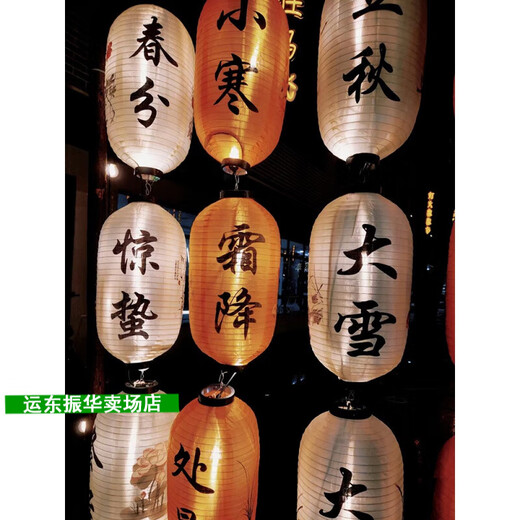 春分
小寒
立秋
惊蛰
霜降
大雪
运东振华卖场店
处暑
大